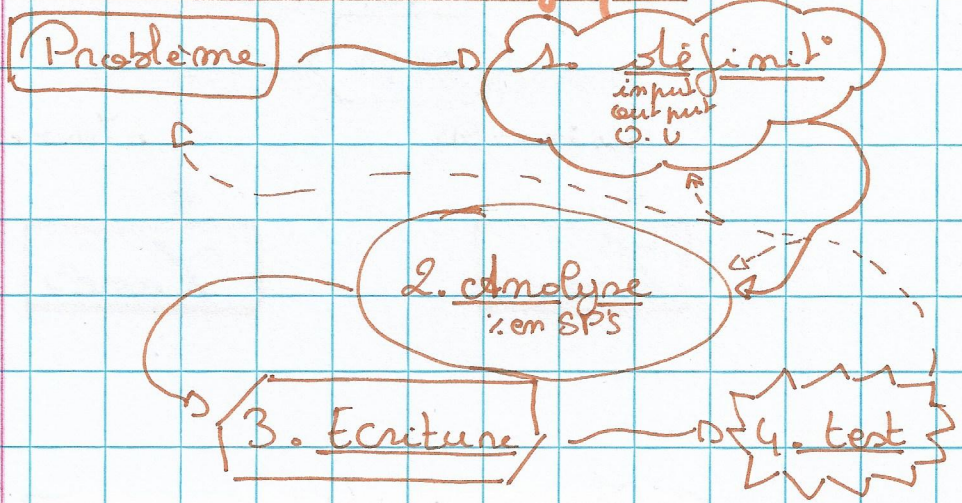 Problème
1. définit°
input
output
O.U
2. Analyse
÷ en SP's
3. Ecriture
4. test